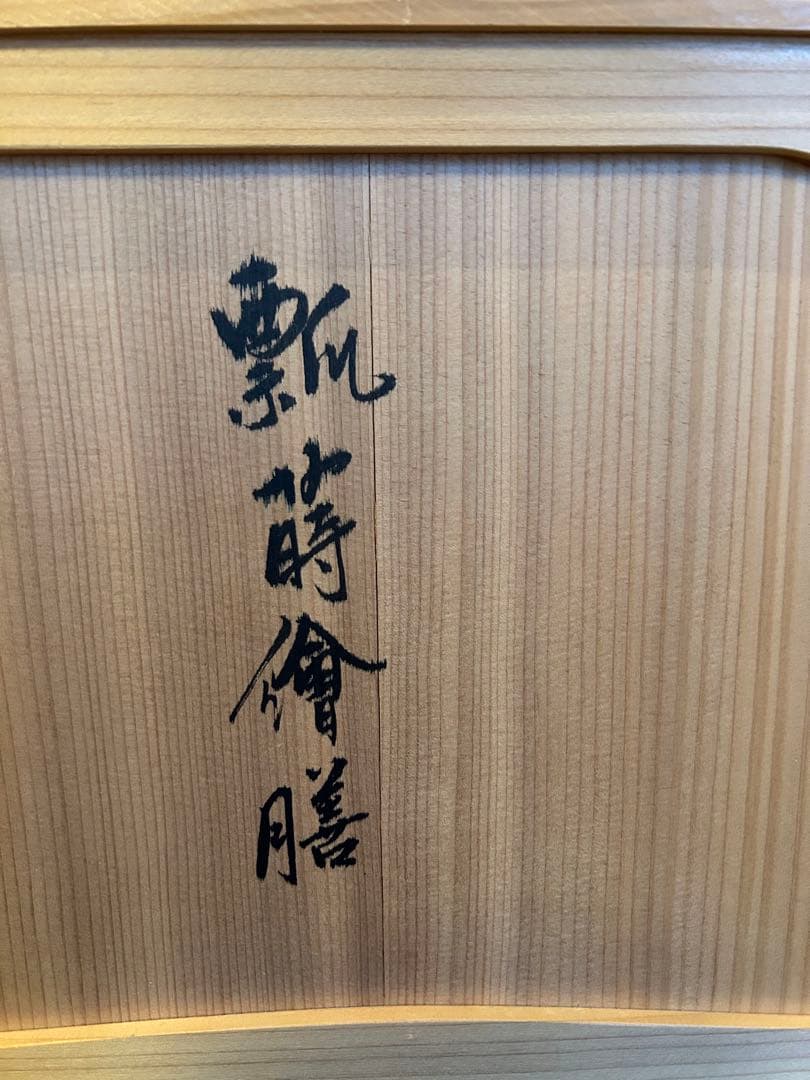 瓢蒔繪膳